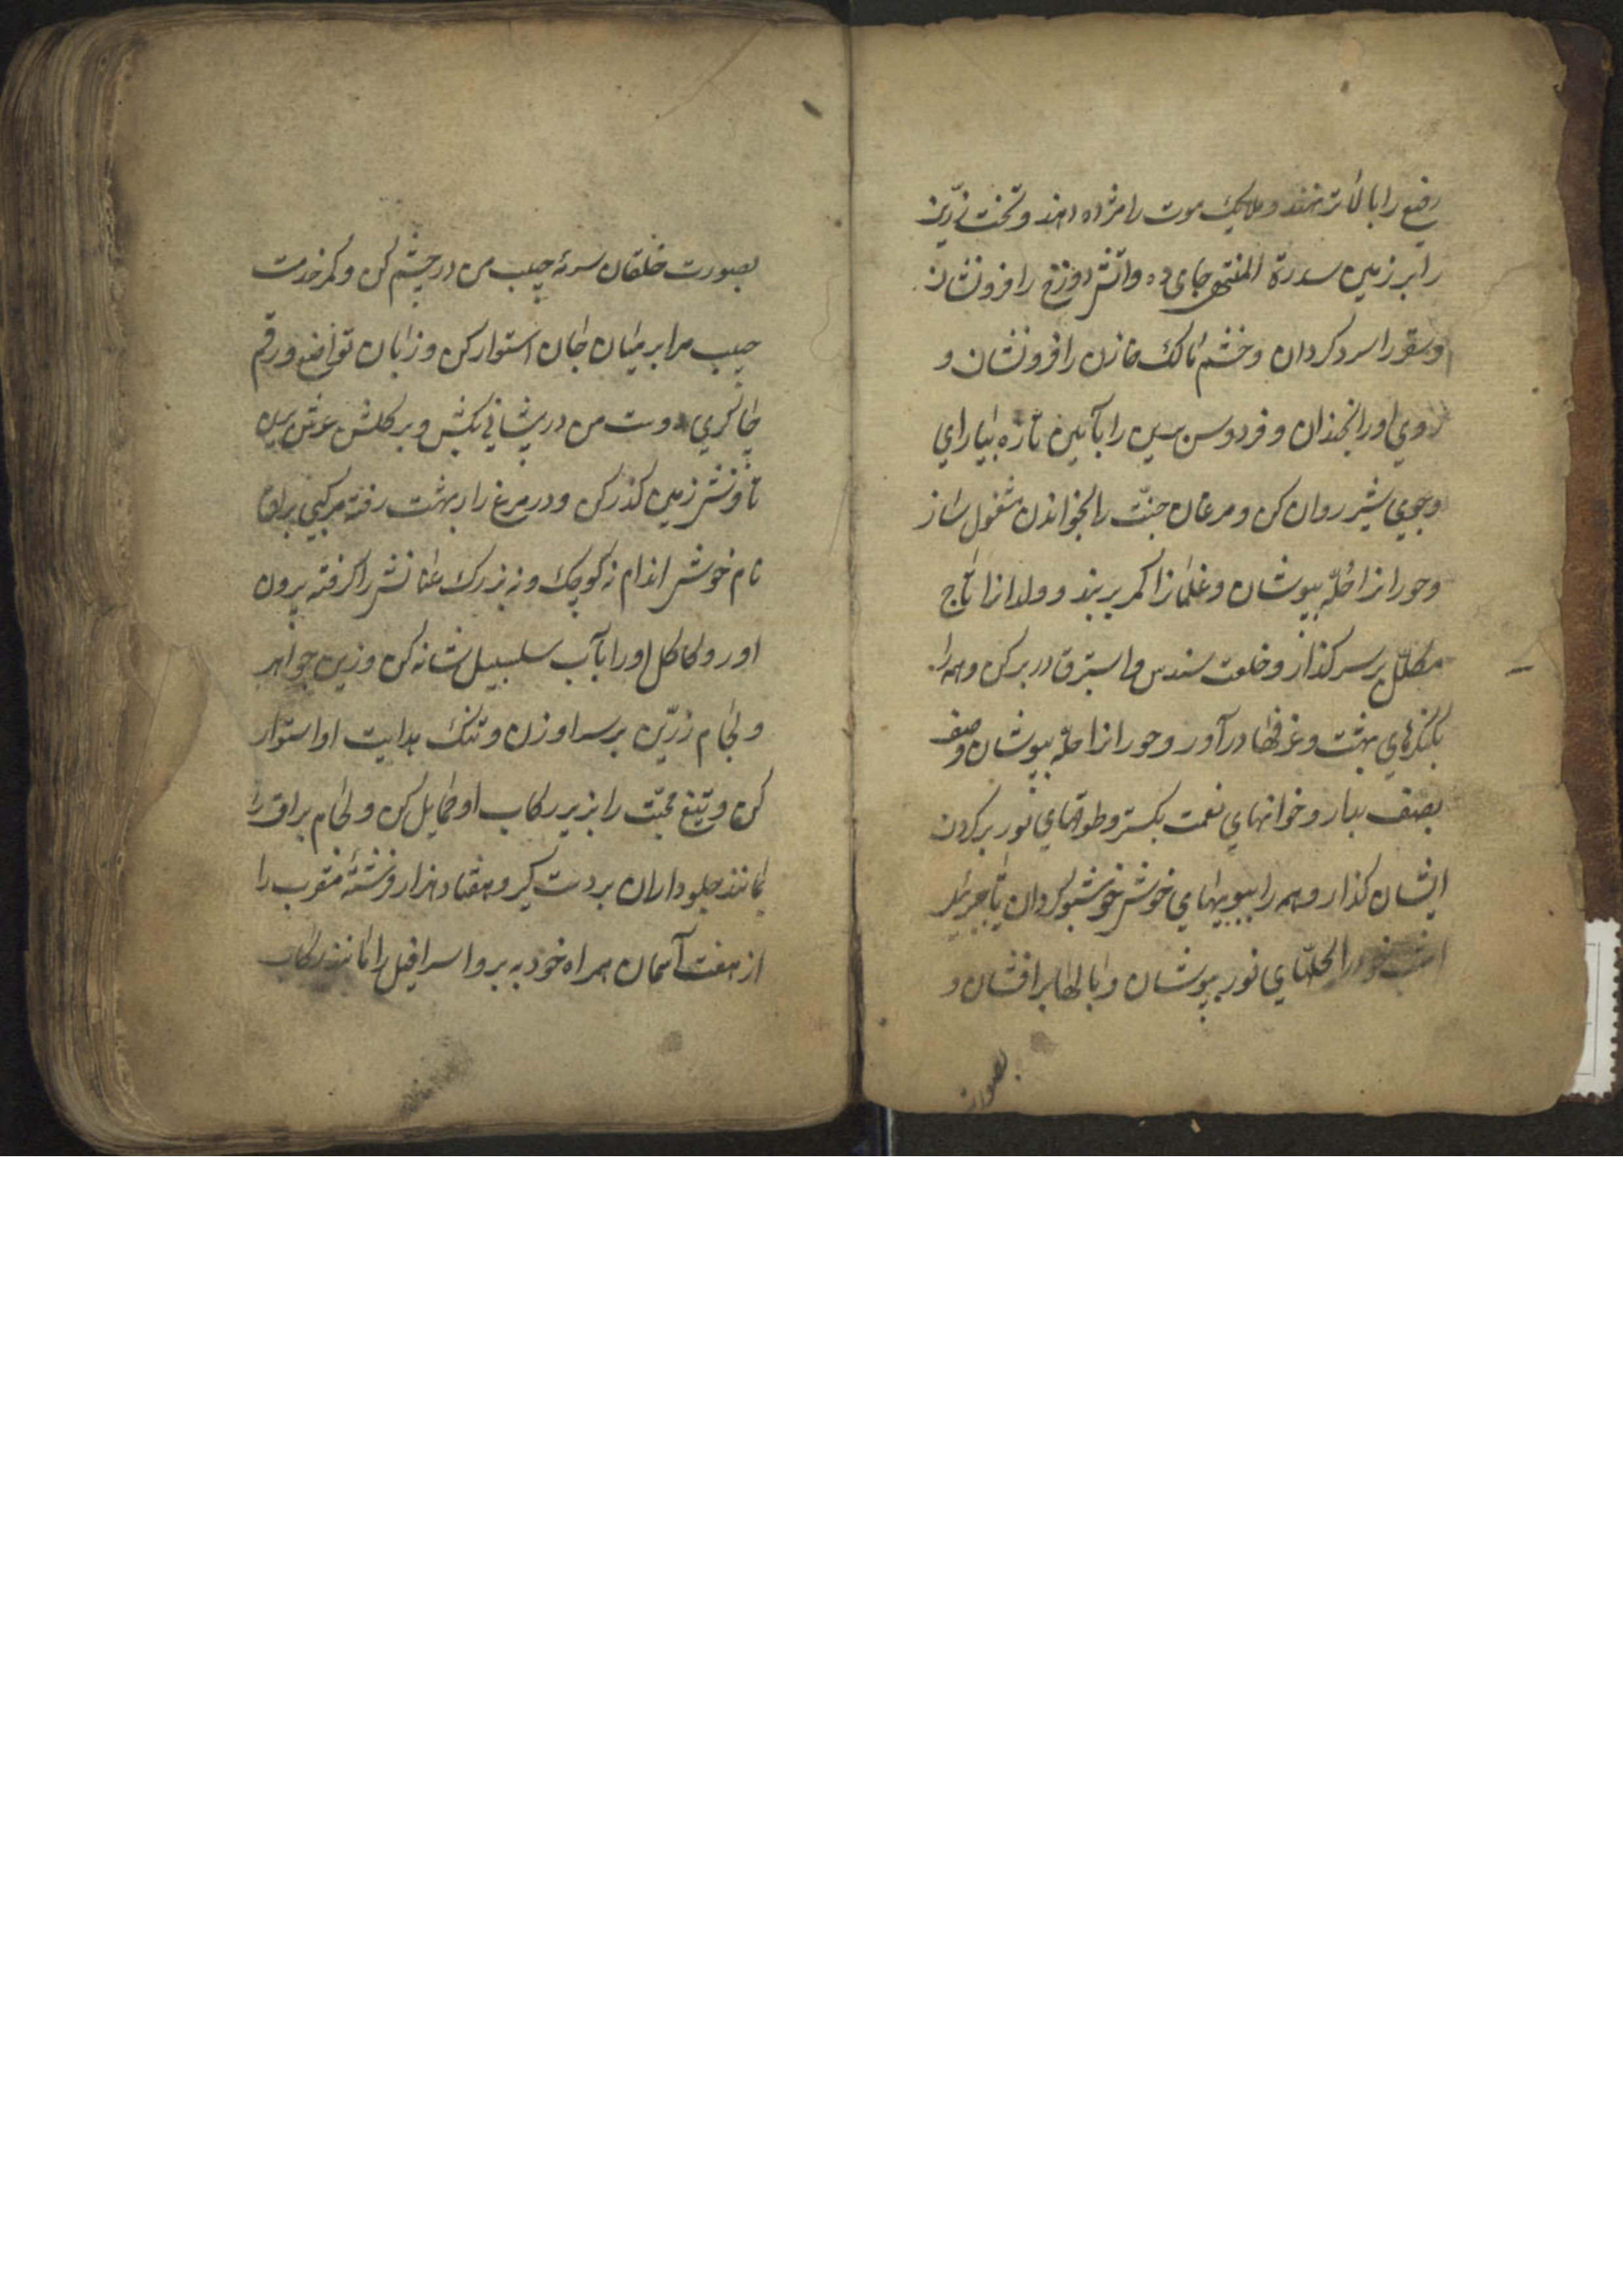 رفیع را بالاتر نهند و ملایک موت را مژده دهند و تخت زرّین
را بر زمین سدرة المنتهی جای ده و آتش دوزخ را فرونشان
و سقر را سرد کردان و خشم مالک خازن را فرونشان و
روی او را بخندان و فردوس برین را بآیین تازه بیارای
و جوی شیر روان کن و مرغان جنّت را بخواندن مشغول ساز
و حورانرا حلّه بپوشان و غلمانرا کمر بربند و ولدانرا تاج
مکلّل بر سر کذار و خلعت سندس و استبرق در بر کن و همه را
بکنکرهای بهشت و غرفها درآور و حورانرا حلّه بپوشان و صف
بصف بدار و خوانهای نعمت بکستر و طوقهای نور بر کردن
ایشان کذار و همه را ببویهای خوش خوشبو کردان یا جبرئیل
خود را بحلّهای نور بپوشان و بالها برافشان و
بصورت
بصورت خلقان سرمۀ حبیب من در چشم کن و کمر خدمت
حبیب مرا بر میان جان استوار کن و زبان تواضع و رقم
چاکری دوست من در پیشانی بکش و بر کلشن عرش برین
تا فرش زمین کذر کن و در مرغزار بهشت رفته مرکبی براق
نام خوش اندام نه کوچک و نه بزرک عنانش را کرفته بیرون
آور و کاکل او را بآب سلسبیل شانه کن و زین جواهر
و لجام زرّین بر سر او زن و تنک هدایت او استوار
کن و تیغ محبّت را بزیر رکاب او حمایل کن و لجام براق را
مانند جلوداران بر دست کیر و هفتاد هزار فرشتۀ مقرب را
از هفت آسمان همراه خود به بر و اسرافیل را مانند رکاب